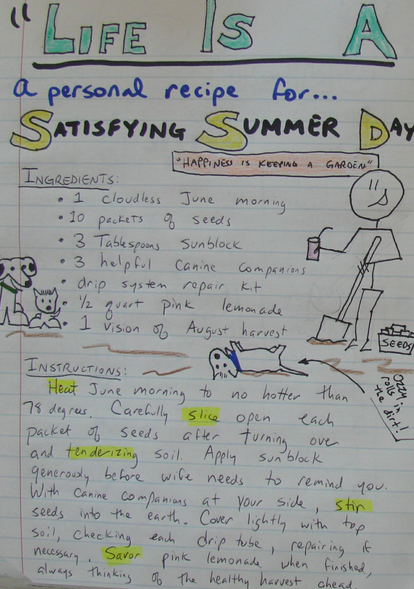 "LIFE IS A
a personal recipe for...
SATISFYING SUMMER DAY
"HAPPINESS IS KEEPING A GARDEN"
INGREDIENTS:
• 1 cloudless June morning
• 10 packets of seeds
• 3 Tablespoons sunblock
• 3 helpful Canine companions
• drip system repair kit
• 1/2 quart pink lemonade
• 1 vision of August harvest
SEEDS
Ozzy
rolls in
the dirt!
INSTRUCTIONS:
Heat June morning to no hotter than
78 degrees. Carefully slice open each
packet of seeds after turning over
and tenderizing soil. Apply sunblock
generously before wife needs to remind you.
With canine companions at your side, stir
seeds into the earth. Cover lightly with top
soil, checking each drip tube, repairing if
necessary. Savor pink lemonade when finished,
always thinking of the healthy harvest ahead.